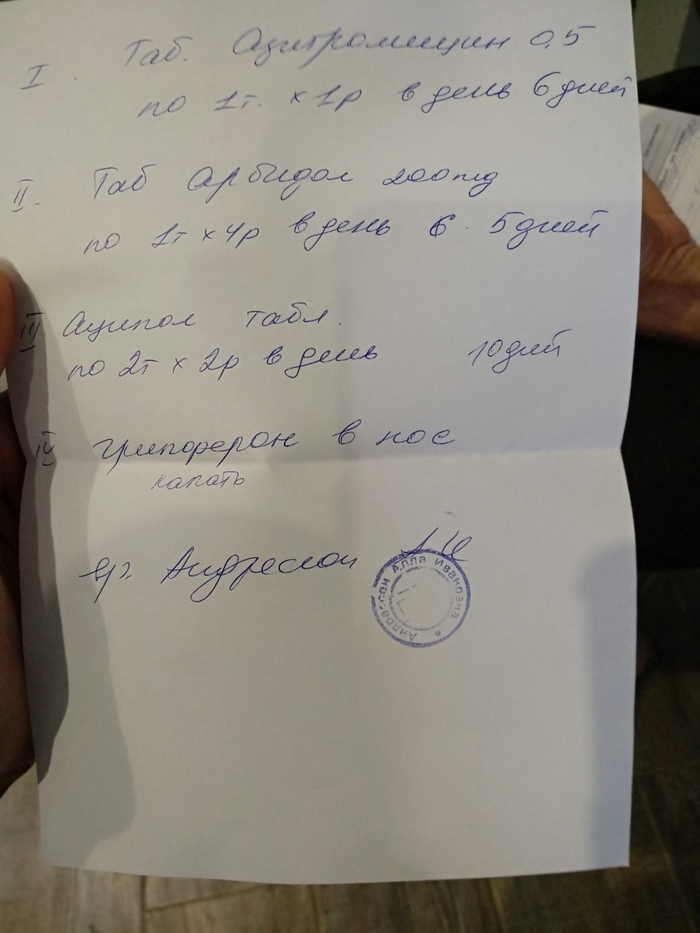 I. Таб. Азитромицин 0,5
по 1т. х 1р в день 6 дней
II. Таб Арбидол 200мг
по 1т х 4р в день 5 дней
III Аципол табл.
по 2т х 2р в день 10 дней
IV Грипферон в нос
капать
вр. Андрессон
Андрессон Алла Ивановна